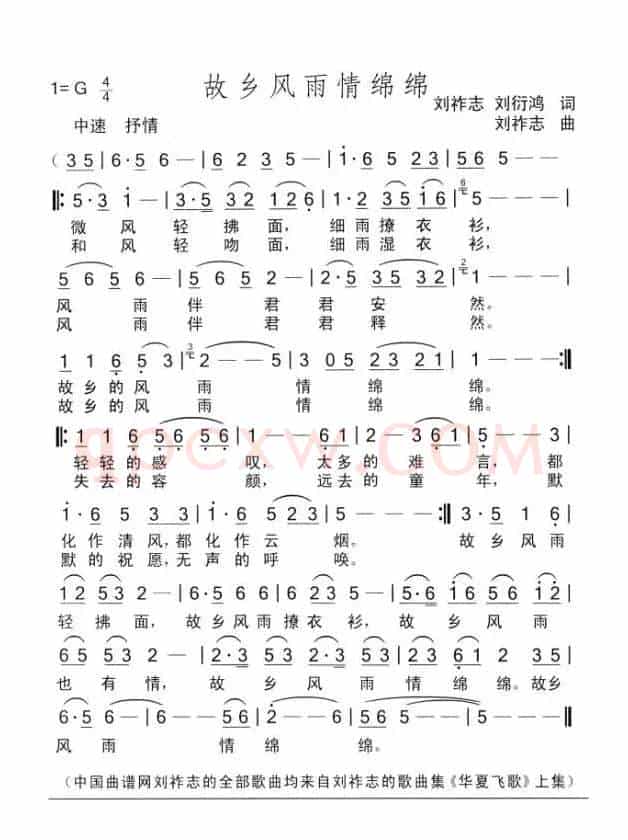 故乡风雨情绵绵
1=G 4/4
刘祚志 刘衍鸿 词
中速 抒情
刘祚志 曲
(3 5 | 6·5 6 – | 6 2 3 5 – | 1·6 5 2 3 | 5 6 5 – |
‖: 5·3 1 – | 3·5 3 2 1 2 6 | 1·2 3 5 1 6 | 5 – – – |
微 风 轻 拂 面, 细 雨 撩 衣 衫,
和 风 轻 吻 面, 细 雨 湿 衣 衫,
5 6 5 – | 5 6 2 – | 2·3 5 3 5 3 2 | 1 – – – |
风 雨 伴 君 君 安 然。
风 雨 伴 君 君 释 然。
1 1 6 5 3 | 2 – – 5 | 3 0 5 2 3 2 1 | 1 – – – :‖
故 乡 的 风 雨 情 绵 绵。
故 乡 的 风 雨 情 绵 绵。
qpcxw.com
‖: 1 1 6 5 6 5 6 | 6 – – 6 1 | 2 – 3 6 1 | 5 – – 3 |
轻 轻 的 感 叹, 太 多 的 难 言, 都
失 去 的 容 颜, 远 去 的 童 年, 默
1·6 5 3 | 1·6 5 2 3 | 5 – – – :‖ 5 3 1 6 |
化 作 清 风, 都 化 作 云 烟。 故 乡 风 雨
默 的 祝 愿, 无 声 的 呼 唤。
1 2 5 3 – | 6·5 6 1 2 3 | 5 – 5 – | 5·6 1 6 5 6 1 2 |
轻 拂 面, 故 乡 风 雨 撩 衣 衫, 故 乡 风 雨
6 5 5 3 2 – | 2·3 5 3 5 3 5 | 2 3 2 6 1 2 | 3 – – 2 3 |
也 有 情, 故 乡 风 雨 情 绵 绵。 故乡
6·5 5 6 | 5 – – 5 6 | 2 – 6 – | 5 – – – | 5 – – – ‖
风 雨 情 绵 绵。
(中国曲谱网刘祚志的全部歌曲均来自刘祚志的歌曲集《华夏飞歌》上集)